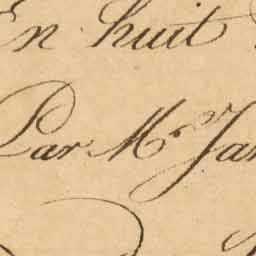 En huit
Par Mr. Jan